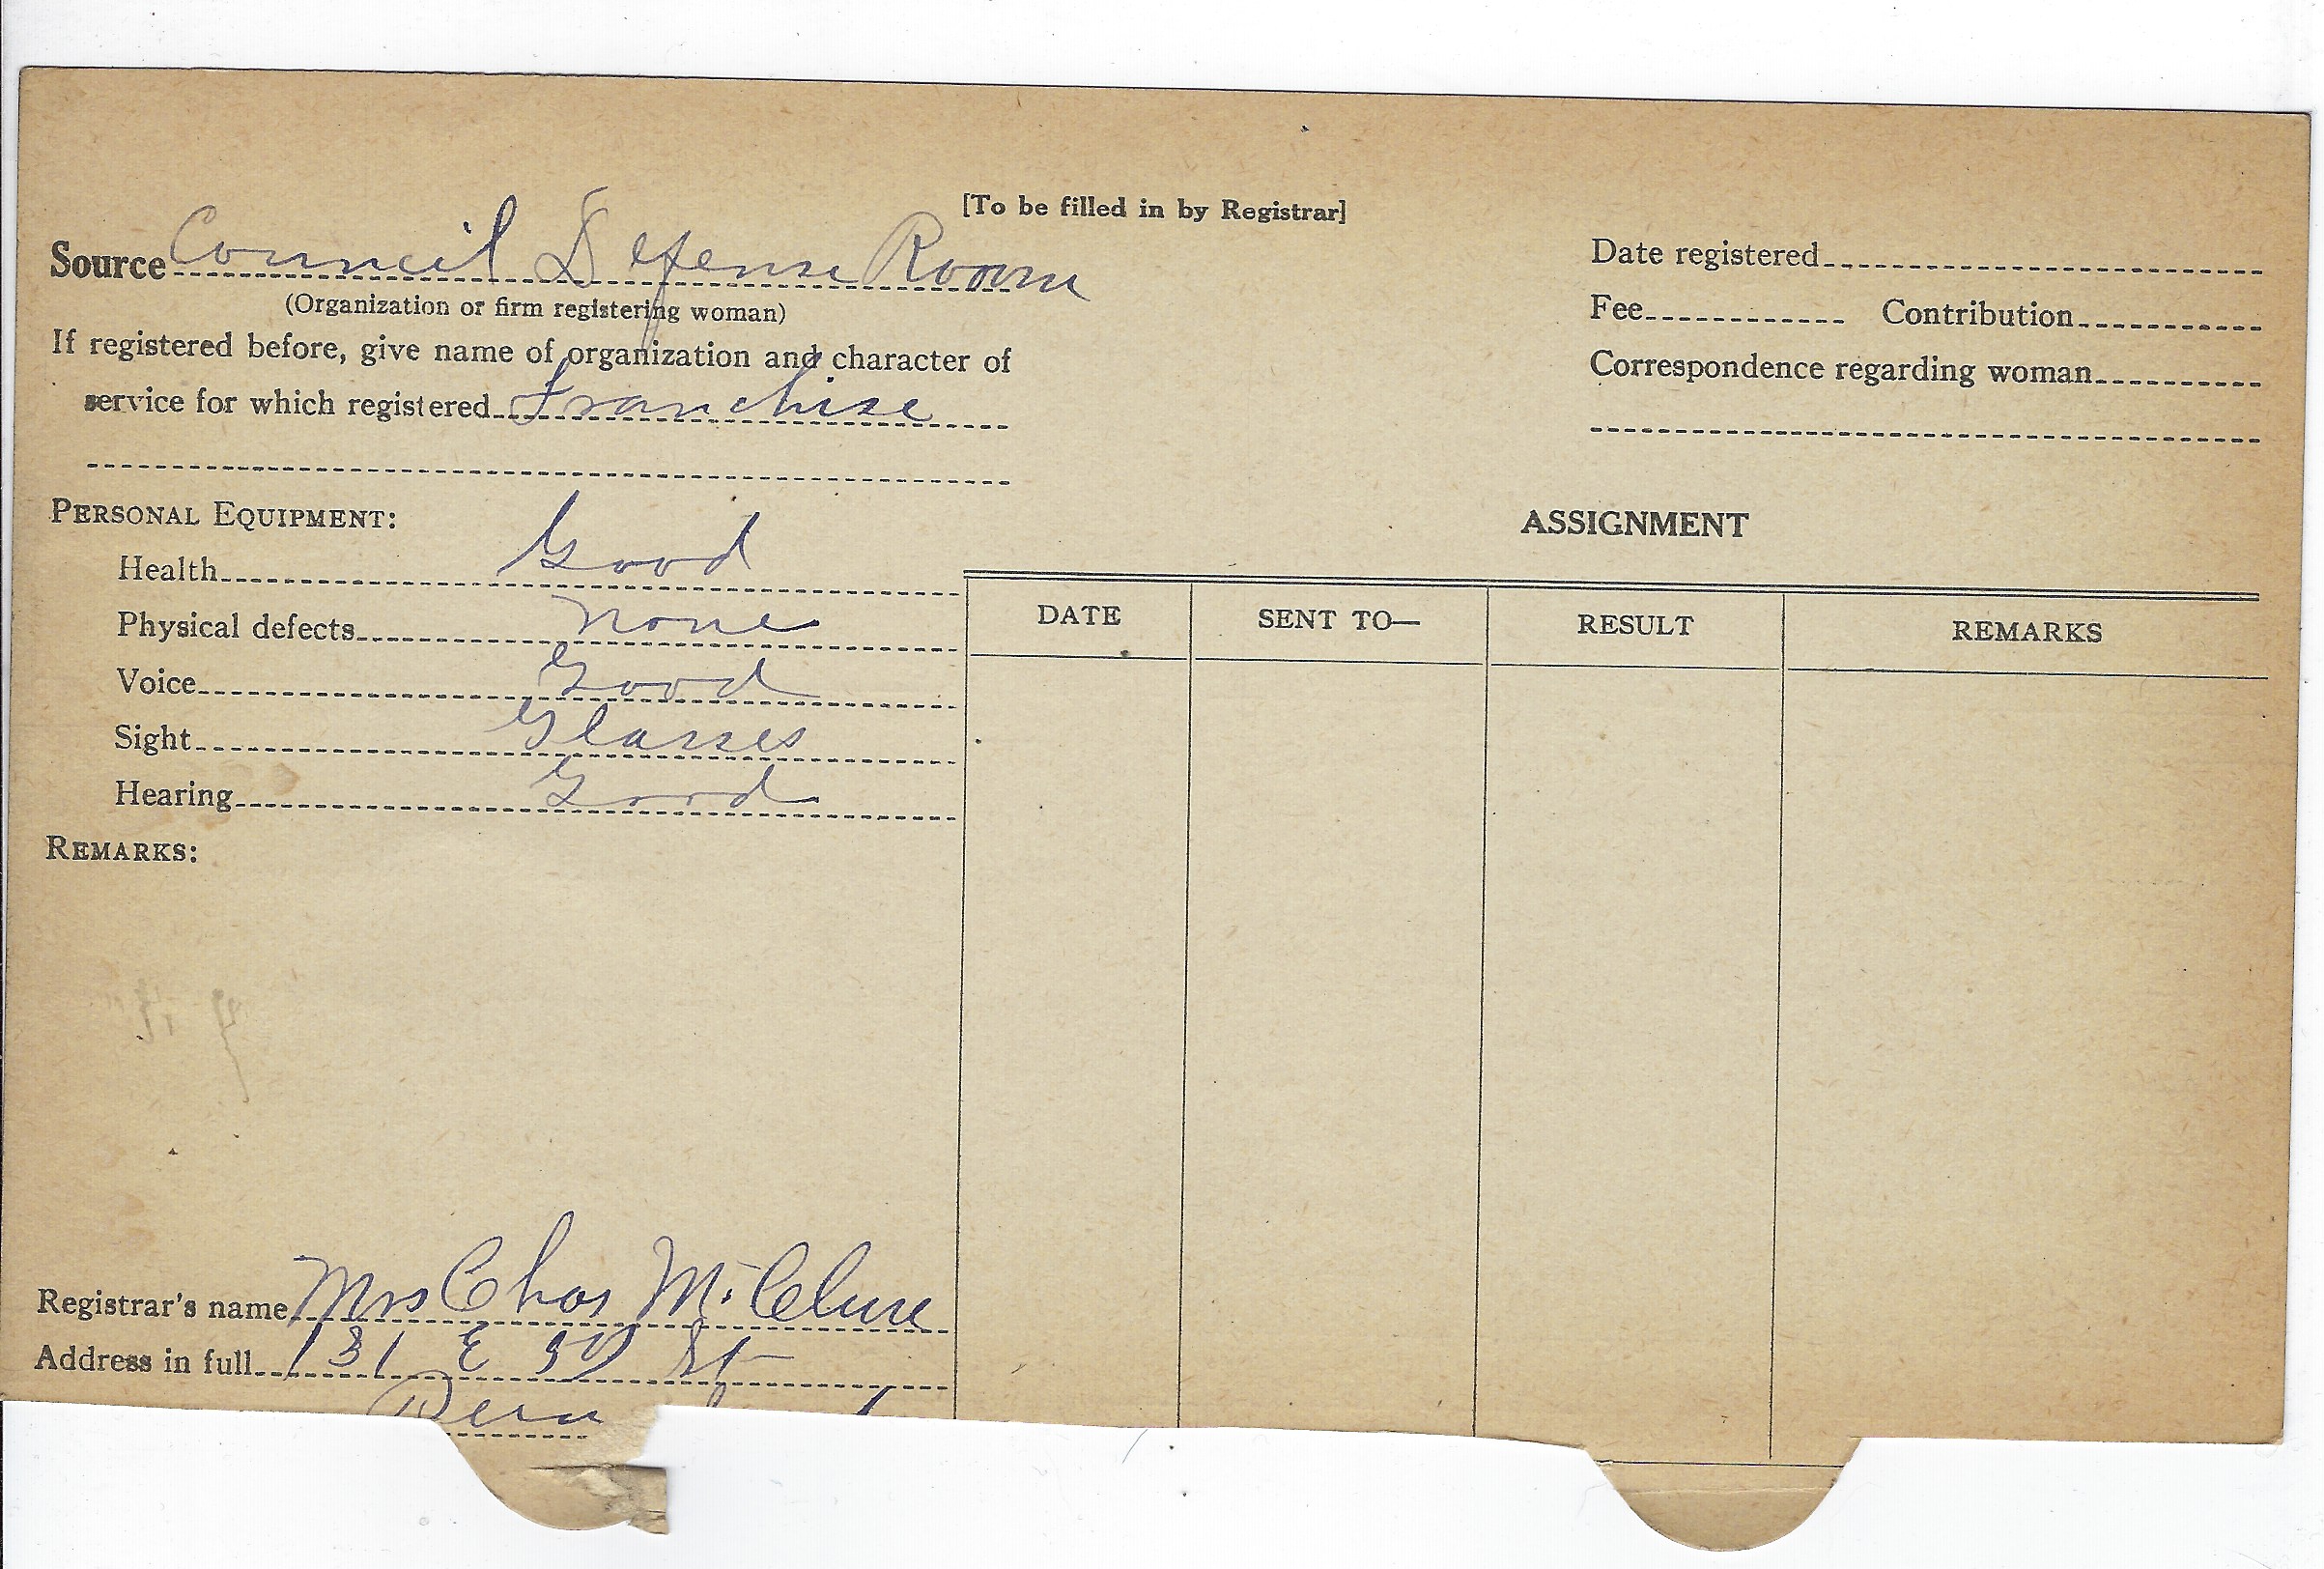 [To be filled in by Registrar]
Source Council Defense Room
(Organization or firm registering woman)
If registered before, give name of organization and character of
service for which registered Franchise
Date registered
Fee Contribution
Correspondence regarding woman
PERSONAL EQUIPMENT:
Health Good
Physical defects None
Voice Good
Sight Glasses
Hearing Good
REMARKS:
ASSIGNMENT
DATE SENT TO— RESULT REMARKS
Registrar's name Mrs Chas McClure
Address in full 131 E St